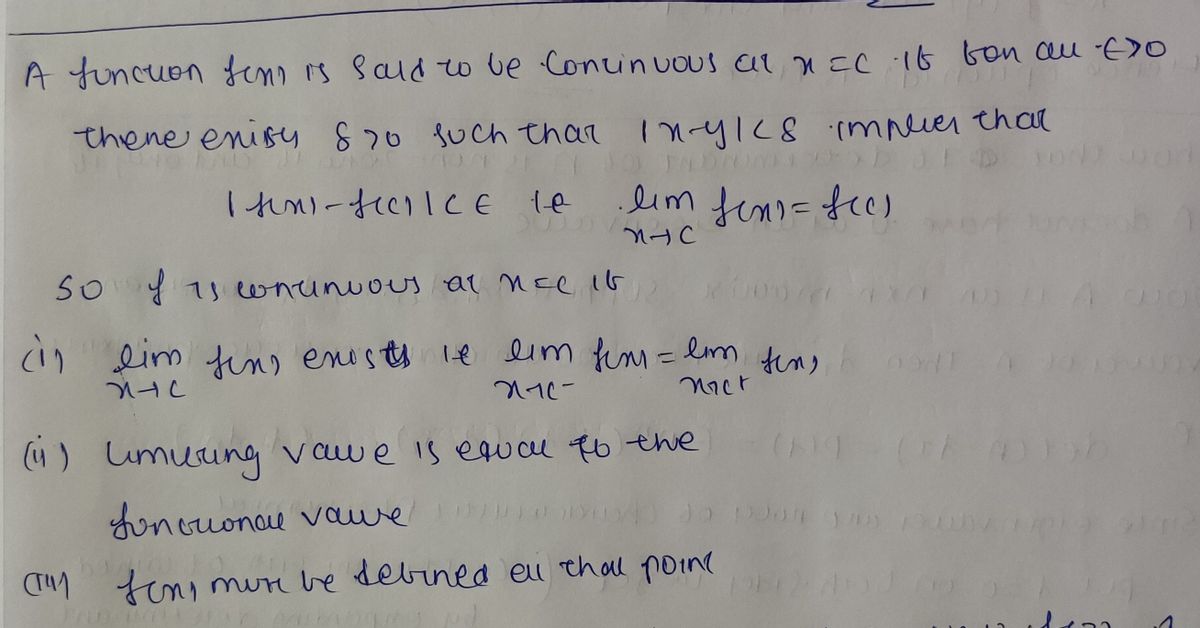 A function f(x) is said to be continuous at x = c if for all ε>0
there exists δ>0 such that |x-y|<δ implies that
|f(x)-f(c)|<ε ie lim x→c f(x) = f(c)
So f is continuous at x=c if
(i) lim x→c f(x) exists ie lim x→c- f(x) = lim x→c+ f(x)
(ii) limiting value is equal to the
functional value
(iii) f(x) must be defined at that point